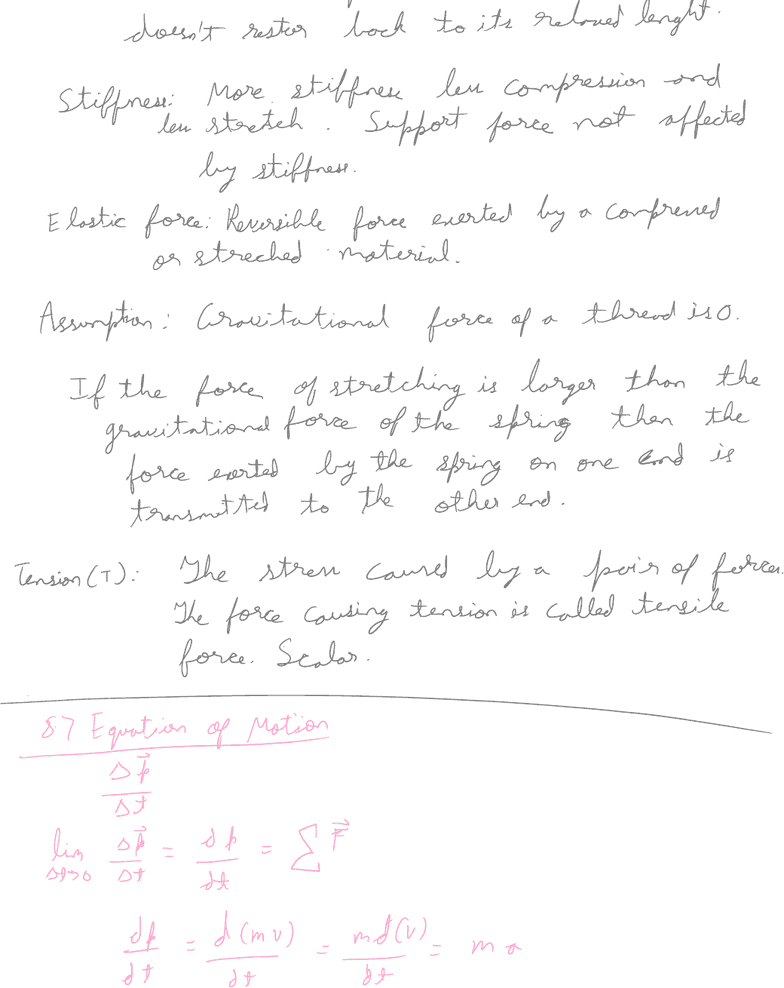 doesn't restor back to its relaxed lenght.
Stiffness: More stiffness less compression and
less stretch. Support force not affected
by stiffness.
Elastic force: Reversible force exerted by a compressed
or streched material.
Assumption: Gravitational force of a thread is 0.
If the force of stretching is larger than the
gravitational force of the spring then the
force exerted by the spring on one end is
transmitted to the other end.
Tension (T): The stress caused by a pair of forces.
The force causing tension is called tensile
force. Scalar.
8.7 Equation of Motion
Δp⃗/Δt
lim Δt→0 Δp⃗/Δt = dp/dt = ∑F⃗
dp/dt = d(mv)/dt = md(v)/dt = ma